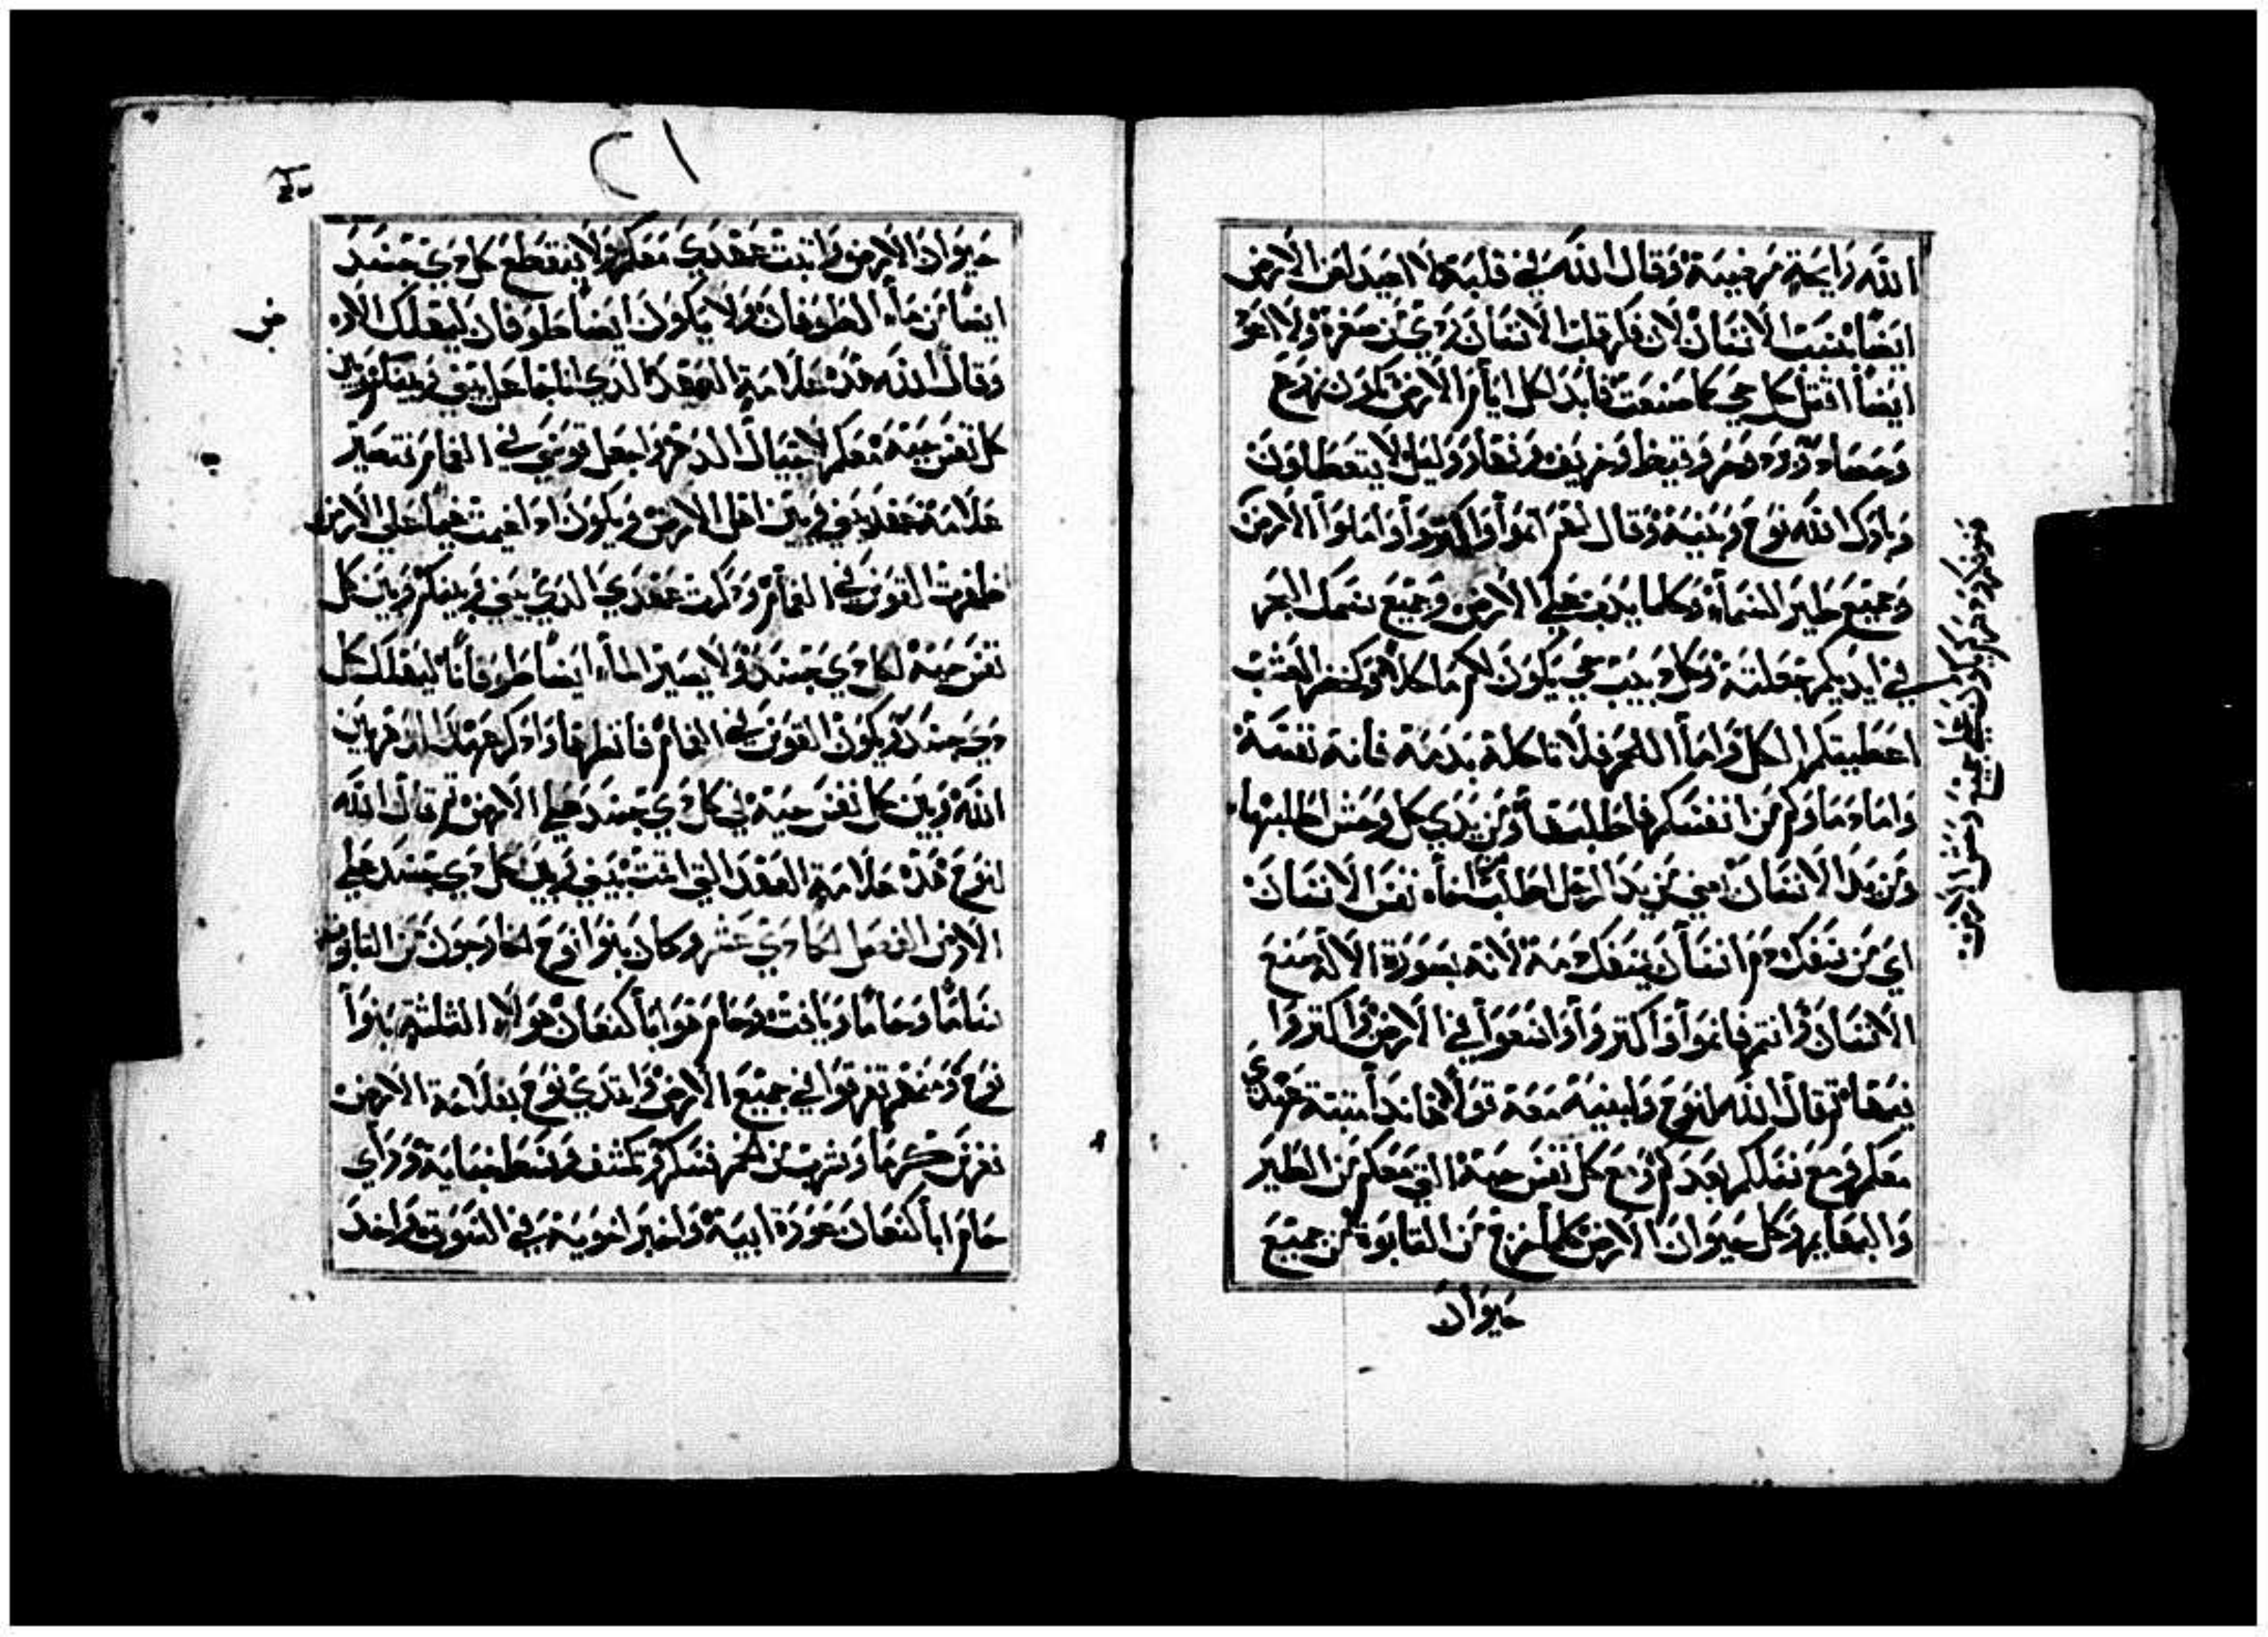 الله رايحة مرضية وقال الله في قلبه لا اعيد لعن الارض
ايضا بسبب الانسان لان فكر قلب الانسان ردي من صغره ولا اعود
ايضا اقتل كل حي كما صنعت فابدا كل ايام الارض تكون زرع
وحصاد وبرد وحر وقيظ وخريف ونهار وليل لا يتعطلون
وبارك الله نوح وبنيه وقال لهم انموا واكتروا واملوا الارض
وجميع طير السماء وكلما يدب علي الارض وجميع سمك البحر
في ايديكم جعلته وكل دبيب حي يكون لكم ماكلا وكخضر العشب
اعطيتكم الكل واما اللحم فلا تاكله بدمه فانه نفسه
واما دماوكم من انفسكم فاطلبها ومن يدي كل وحش اطلبها
ومن يد الانسان اعني من يد الرجل اطلب اخاه نفس الانسان
اي من سفك دم انسان يسفك دمه لانه بصورة الاله صنع
الانسان وانتم فانموا واكتروا واسعوا في الارض واكتروا
فيها ثم قال الله لنوح ولبنيه معه قولا هاندا متبته عهدي
معكم ومع نسلكم بعدكم ومع كل نفس حية التي معكم من الطير
والبهايم وكل حيوان الارض كلما خرج من التابوة من جميع
حيوان
حيوان الارض واتبت عهدي معكم ولا ينقطع كل دي جسد
ايضا من ماء الطوفان ولا يكون ايضا طوفان ليهلك الارض
وقال الله هده علامة العهد الدي انا جاعل بيني وبينكم وبين
كل نفس حية معكم لاجيال الدهر واجعل قوسي في الغمام فتصير
علامة عهد بيني وبين اهل الارض ويكون ادا غيمت غيما علي الارض
ظهرت القوس في الغمام ودكرت عهدي الدي بيني وبينكم وبين كل
نفس حية لكل دي جسد ولا يصير الماء ايضا طوفانا ليهلك كل
دي جسد ويكون القوس في الغمام فانظرها وادكر عهد الدهر بين
الله وبين كل نفس حية في كل دي جسد علي الارض ثم قال الله
لنوح هده علامة العهد التي اقمت بيني وبين كل دي جسد علي
الارض الفصل الحادي عشر وكان بنوا نوح الخارجون من التابوت
ساما وحاما ويافت وحام هو ابا كنعان هولاء الثلثة بنوا
نوح ومنهم تفرقوا في جميع الارض وابتدي نوح بفلاحة الارض
نغرس كرما وشرب من الخمر فسكر وتكشف وسط خبايه وراي
حام ابا كنعان عورة ابيه واخبر اخويه في السوق واخد